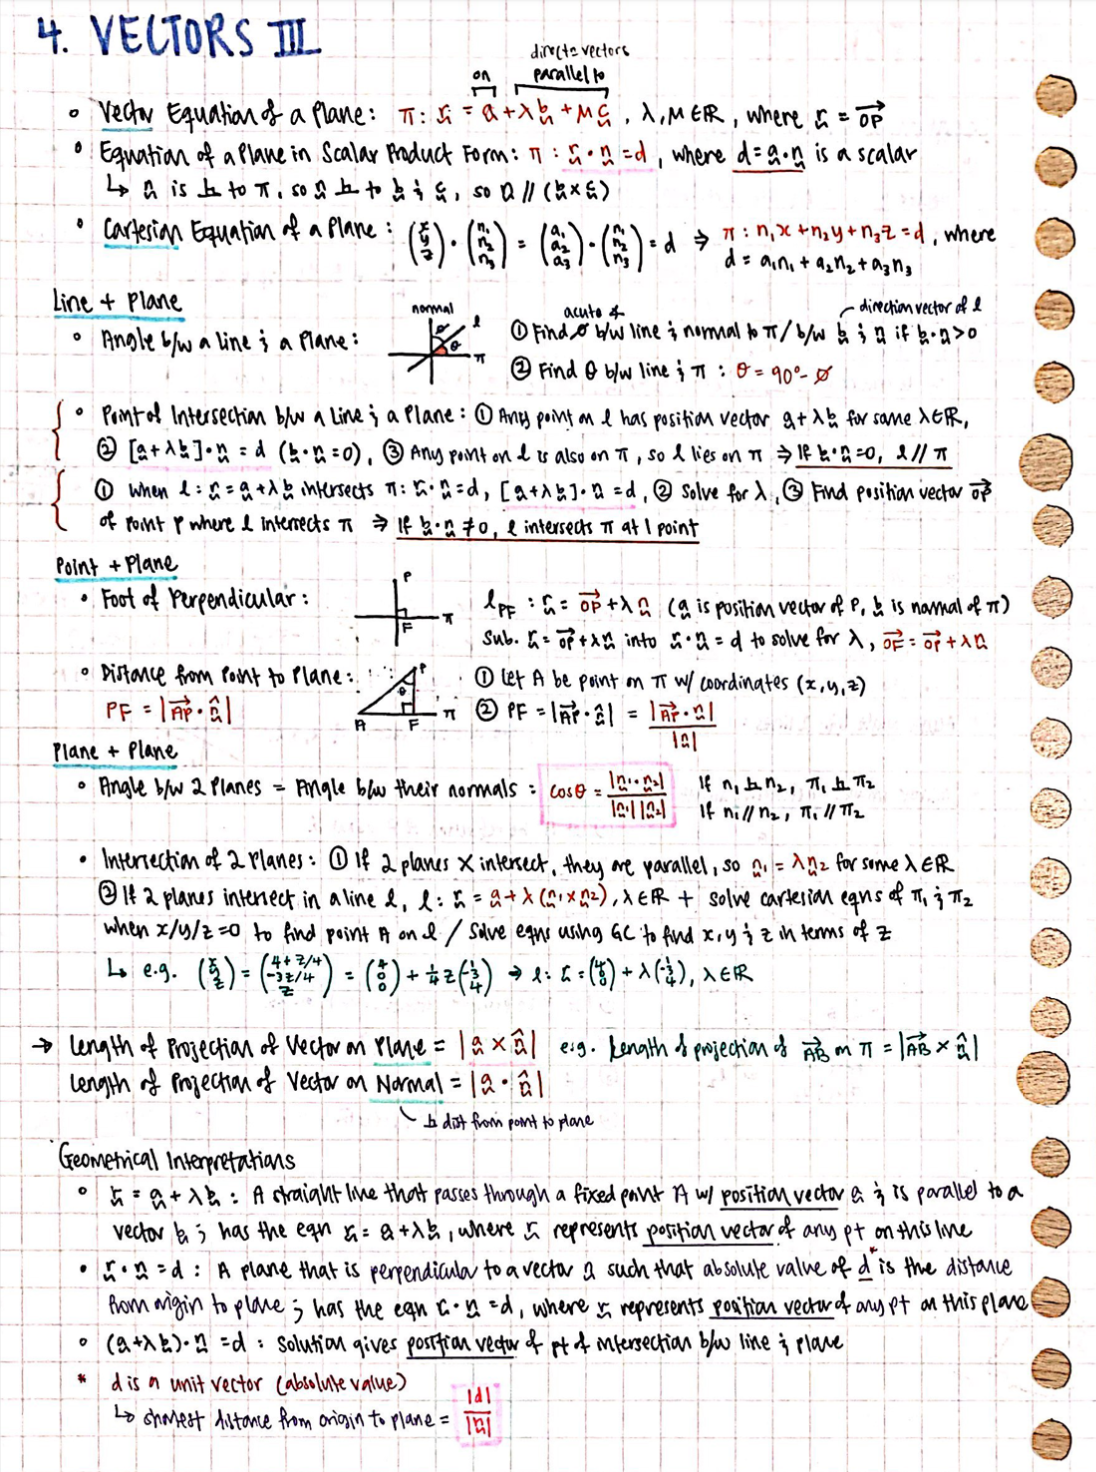 4. VECTORS III
directn vectors
on parallel to
• Vector Equation of a Plane: π: r = a + λb + μc, λ, μ ∈ ℝ, where r = OP
• Equation of a Plane in Scalar Product Form: π: r·n = d, where d = a·n is a scalar
↳ n is ⊥ to π, so n ⊥ to b & c, so n // (b × c)
• Cartesian Equation of a Plane: (x y z)·(n₁ n₂ n₃) = (a₁ a₂ a₃)·(n₁ n₂ n₃) = d ⇒ π: n₁x + n₂y + n₃z = d, where
d = a₁n₁ + a₂n₂ + a₃n₃
Line + Plane
normal l ø θ π
acute ∡ direction vector of l
• Angle b/w a line & a Plane: ① Find ø b/w line & normal to π / b/w b & n if b·n > 0
② Find θ b/w line & π: θ = 90° - ø
• Point of Intersection b/w a Line & a Plane: ① Any point on l has position vector a + λb for some λ ∈ ℝ,
② [a + λb]·n = d (b·n = 0), ③ Any point on l is also on π, so l lies on π ⇒ If b·n = 0, l // π
① When l: r = a + λb intersects π: r·n = d, [a + λb]·n = d, ② Solve for λ, ③ Find position vector OP
of point P where l intersects π ⇒ If b·n ≠ 0, l intersects π at 1 point
Point + Plane
• Foot of Perpendicular: P F π l_PF: r = OP + λn (a is position vector of P, b is normal of π)
Sub. r = OP + λn into r·n = d to solve for λ, OF = OP + λn
• Distance from Point to Plane: P θ A F π ① Let A be point on π w/ coordinates (x, y, z)
PF = |AP·n̂| ② PF = |AP·n̂| = |AP·n| / |n|
Plane + Plane
• Angle b/w 2 Planes = Angle b/w their normals: cosθ = |n₁·n₂| / |n₁||n₂| If n₁ ⊥ n₂, π₁ ⊥ π₂
If n₁ // n₂, π₁ // π₂
• Intersection of 2 Planes: ① If 2 planes X intersect, they are parallel, so n₁ = λn₂ for some λ ∈ ℝ
② If 2 planes intersect in a line l, l: r = a + λ(n₁ × n₂), λ ∈ ℝ + solve cartesian eqns of π₁ & π₂
when x/y/z = 0 to find point A on l / Solve eqns using GC to find x, y & z in terms of z
↳ e.g. (x y z) = (4+z/4 -3z/4 z) = (4 0 0) + ¼z(1 -3 4) → l: r = (4 0 0) + λ(1 -3 4), λ ∈ ℝ
→ Length of Projection of Vector on Plane = |a × n̂| e.g. Length of projection of AB on π = |AB × n̂|
Length of Projection of Vector on Normal = |a·n̂|
⊥ dist from point to plane
Geometrical Interpretations
• r = a + λb: A straight line that passes through a fixed point A w/ position vector a & is parallel to a
vector b; has the eqn r = a + λb, where r represents position vector of any pt on this line
• r·n = d: A plane that is perpendicular to a vector n such that absolute value of d* is the distance
from origin to plane; has the eqn r·n = d, where r represents position vector of any pt on this plane
• (a + λb)·n = d: Solution gives position vector of pt of intersection b/w line & plane
* d is a unit vector (absolute value)
↳ shortest distance from origin to plane = |d| / |n|